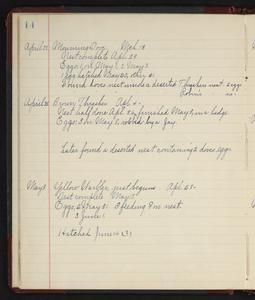 14
April 22 Mourning Dove Mch 18
Nest complete Apl 29
Eggs 1 on May 1, 2 May 3
1 egg hatched May 20, other
Found dove nest inside a deserted Thrasher nest 2 eggs
Robin's
April 26 Brown Thrasher Apl 4
Nest half done Apl 26, finished May 3, in a hedge
Eggs: 3 on May 8, robbed by a jay.
Later found a deserted nest containing 2 dove eggs
May 1 Yellow Warbler just begun Apl 25
Nest complete May
Eggs 2 May 31 3 feeding on nest
3 June 1
Hatched June 14 (3)